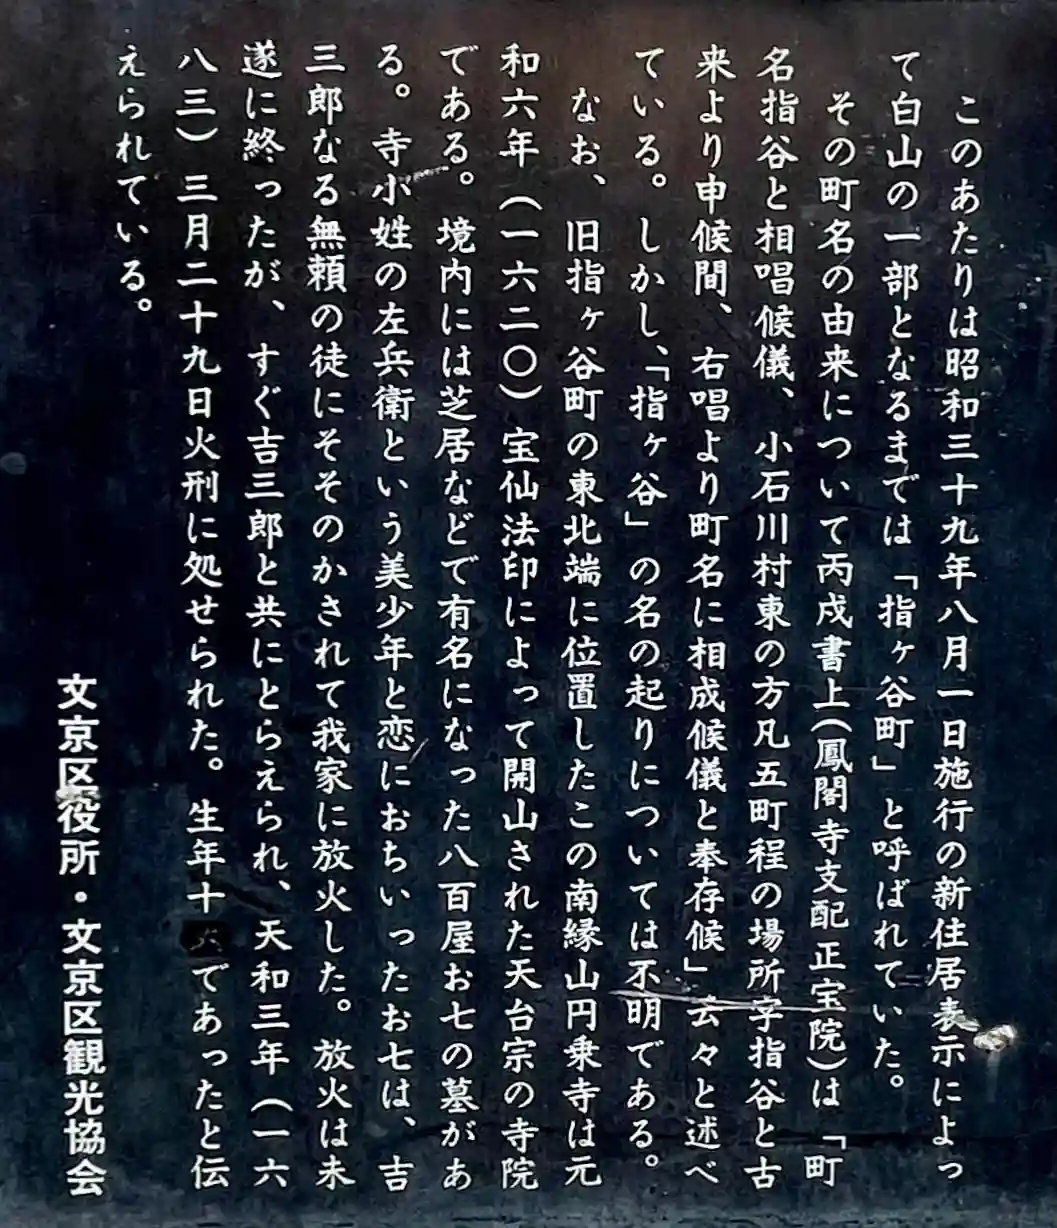 このあたりは昭和三十九年八月一日施行の新住居表示によっ
て白山の一部となるまでは「指ヶ谷町」と呼ばれていた。
その町名の由来について丙戌書上（鳳閣寺支配正宝院）は「町
名指谷と相唱候儀、小石川村東の方凡五町程の場所字指谷と古
来より申候間、右唱より町名に相成候儀と奉存候」云々と述べ
ている。しかし、「指ヶ谷」の名の起りについては不明である。
なお、旧指ヶ谷町の東北端に位置したこの南縁山円乗寺は元
和六年（一六二〇）宝仙法印によって開山された天台宗の寺院
である。境内には芝居などで有名になった八百屋お七の墓があ
る。寺小姓の左兵衛という美少年と恋におちいったお七は、吉
三郎なる無頼の徒にそそのかされて我家に放火した。放火は未
遂に終ったが、すぐ吉三郎と共にとらえられ、天和三年（一六
八三）三月二十九日火刑に処せられた。生年十六であったと伝
えられている。
文京区役所・文京区観光協会